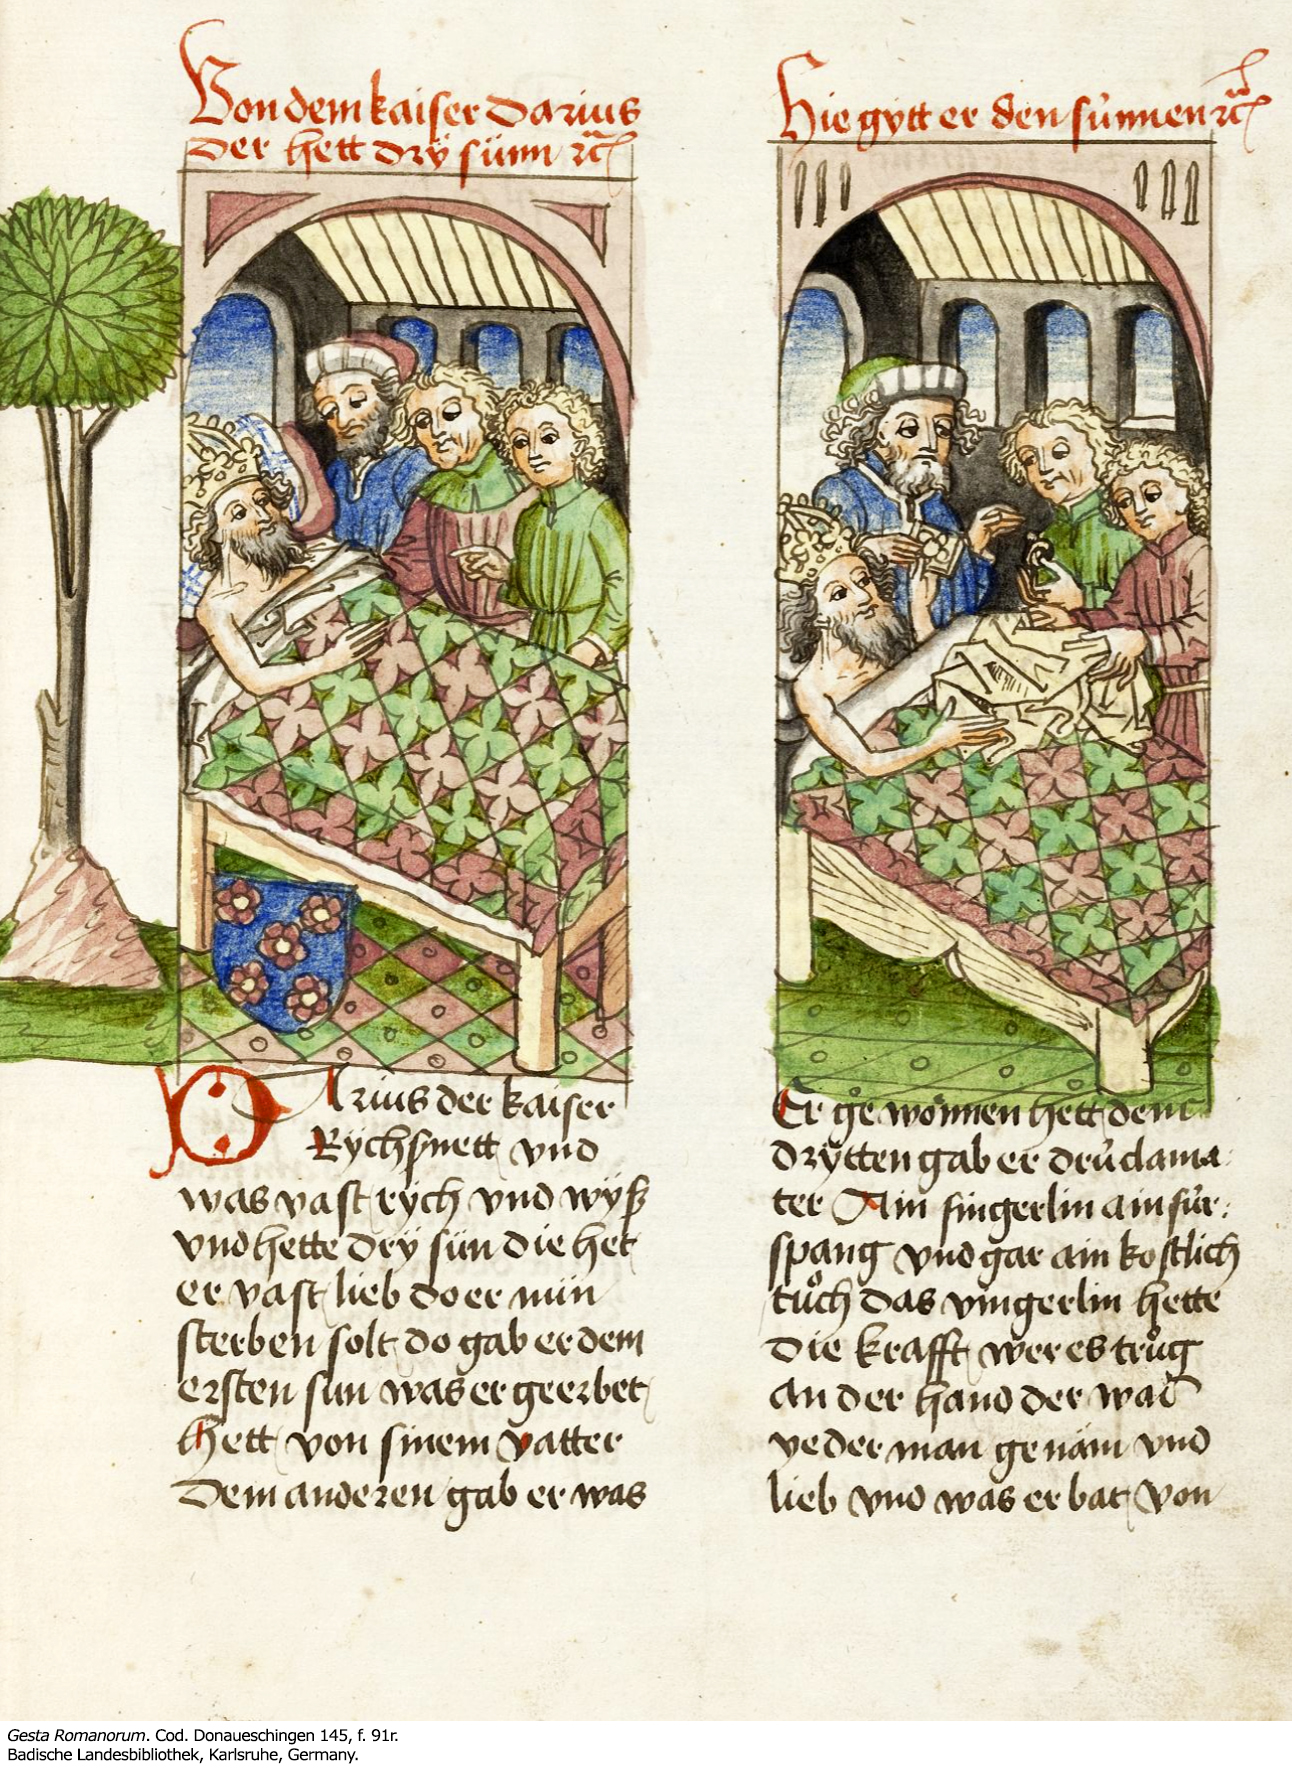 Von dem kaiser Darius
der hett dry sün ꝛc
Darius der kaiser
Rychsnett vnd
was vast rych vnd wyß
vnd hette dry sün die het
er vast lieb do er nün
sterben solt do gab er dem
ersten sun was er geerbet
hett von sinem vatter
Dem anderen gab er was
Hie gytt er den sünnen ꝛc
Er gewonnen hett dem
drytten gab er drü clama
ter Ain fingerlin ain für
spang vnd gar ain kostlich
tuͦch das vingerlin hette
die krafft wer es truͦg
an der hand der wad
yederman genäm vnd
lieb vnd was er bat von
Gesta Romanorum. Cod. Donaueschingen 145, f. 91r.
Badische Landesbibliothek, Karlsruhe, Germany.